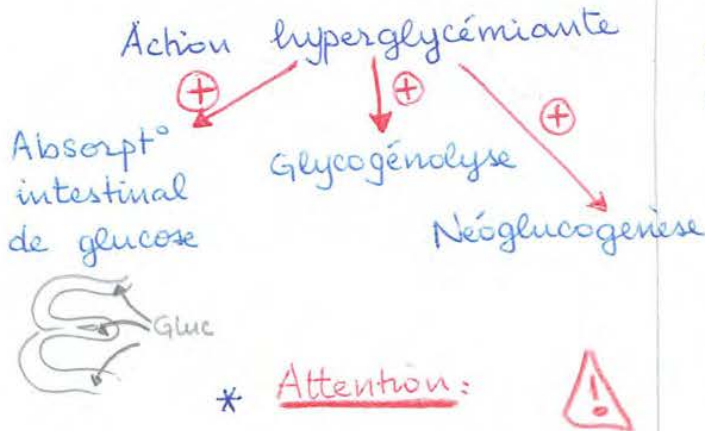 Action hyperglycémiante
+
+
+
Absorpt°
intestinal
de glucose
Glycogénolyse
Néoglucogenèse
Gluc
* Attention:
!